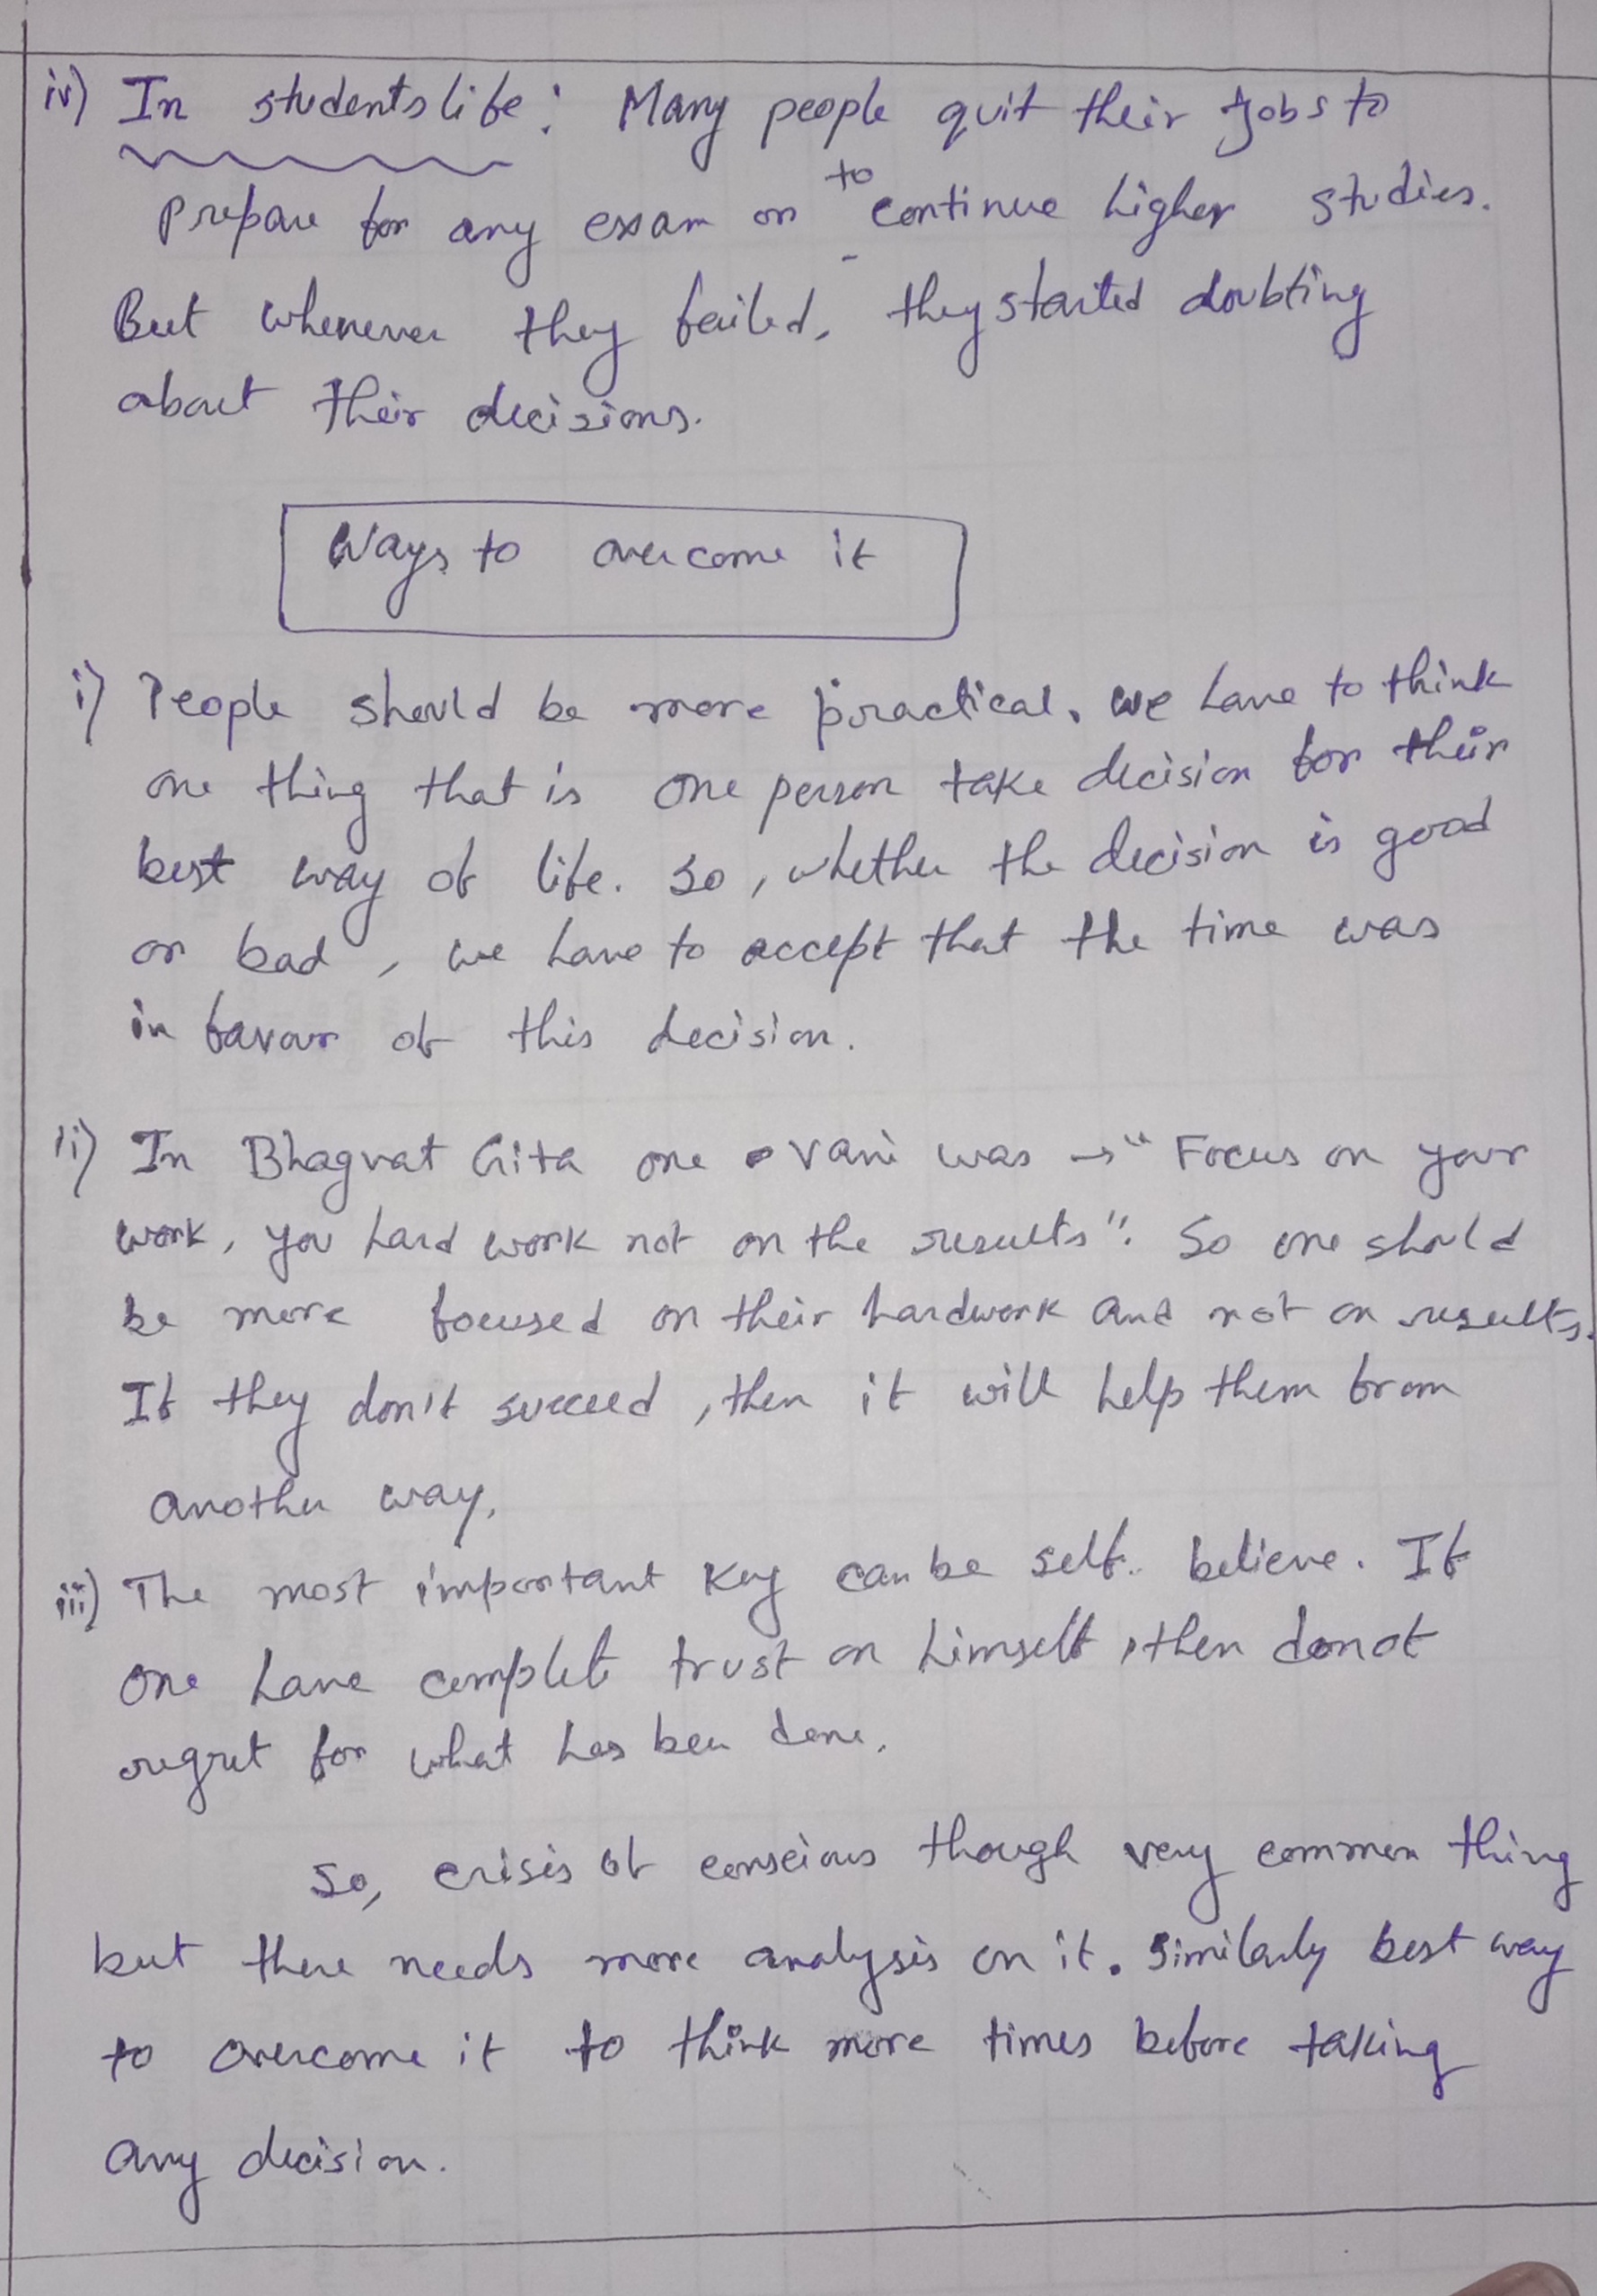 iv) In students life : Many people quit their jobs to
prepare for any exam or to continue higher studies.
But whenever they failed, they started doubting
about their decisions.
Ways to overcome it
i) People should be more practical. we have to think
one thing that is one person take decision for their
best way of life. So, whether the decision is good
or bad, we have to accept that the time was
in favour of this decision.
ii) In Bhagvat Gita one vani was → "Focus on your
work, you hard work not on the results". So one should
be more focused on their hardwork and not on results.
If they don't succeed, then it will help them from
another way.
iii) The most important key can be self believe. If
one have complete trust on himself, then donot
regret for what has been done.
So, crisis of conscious though very common thing
but there needs more analysis on it. Similarly best way
to overcome it to think more times before taking
any decision.